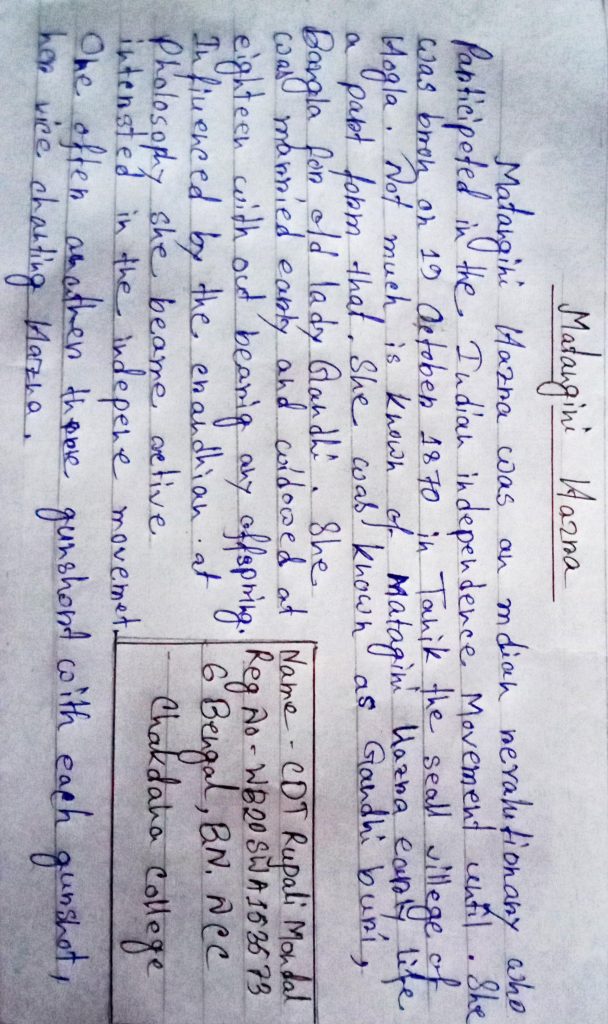 Matangini Hazra
Matangini Hazra was an mdian nevalutionary who
Participeted in the Indian independence Movement until. She
was bron on 19 October 1870 in Tamik the seall village of
Hogla. Not much is known of Matagini Hazna eanly life
a pabt fonm that. She was known as Gandhi buni,
Bangla fon old lady Gandhi. She
was mannied eanly and widowed at
eighteen with out beanig any offspning.
Influenced by the enandhian. at
Pholosophy she beame active
intensted in the indepene movemet.
One often anathen thone gunshont with each gunshot,
hen vice chanting Hazna.
Name - CDT Rupali Mondal
Reg No - WB20SWA153573
6 Bengal, BN. NCC
Chakdaha College